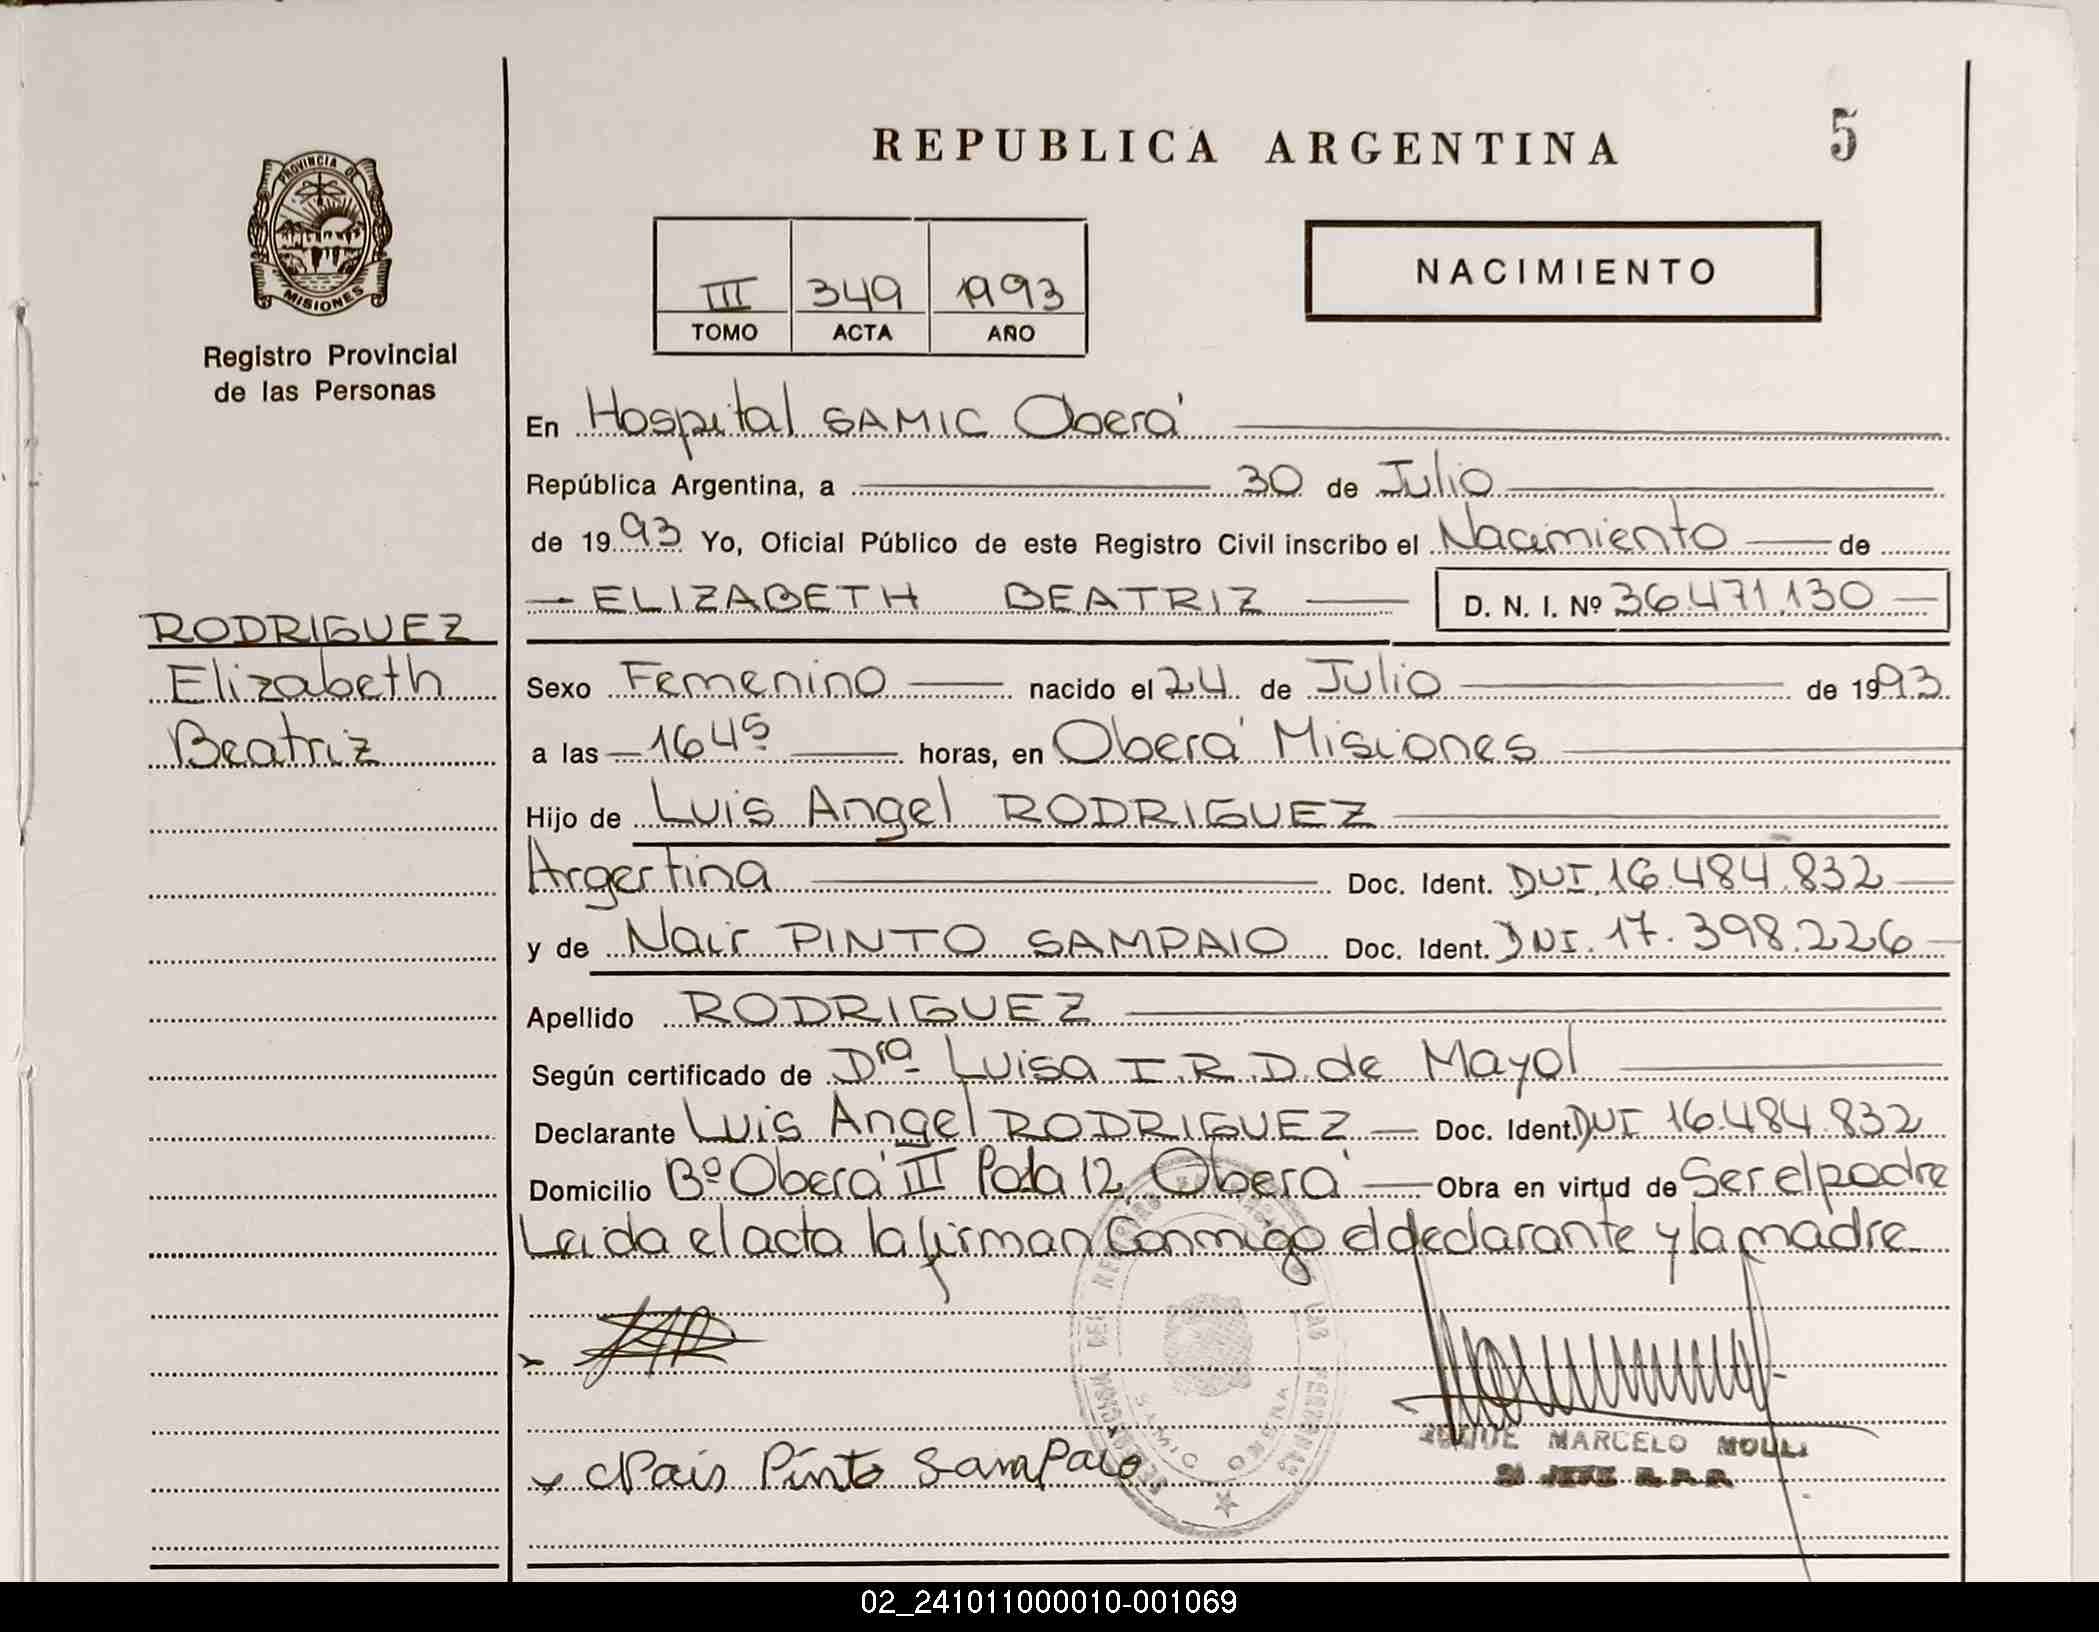 REPUBLICA ARGENTINA
5
PROVINCIA DE
MISIONES
Registro Provincial
de las Personas
III 349 1993
TOMO ACTA AÑO
NACIMIENTO
En Hospital SAMIC Oberá
República Argentina, a 30 de Julio
de 1993 Yo, Oficial Público de este Registro Civil inscribo el Nacimiento de
ELIZABETH BEATRIZ D. N. I. Nº 36.471.130
RODRIGUEZ
Elizabeth
Beatriz
Sexo Femenino nacido el 24 de Julio de 1993
a las 16 45 horas, en Oberá Misiones
Hijo de Luis Angel RODRIGUEZ
Argentina Doc. Ident. DNI. 16.484.832
y de Nair PINTO SAMPAIO Doc. Ident. DNI. 17.398.226
Apellido RODRIGUEZ
Según certificado de Dra. Luisa I.R.D. de Mayol
Declarante Luis Angel RODRIGUEZ Doc. Ident. DNI 16.484.832
Domicilio Bº Oberá III 12 Oberá Obra en virtud de Ser el padre
Leida el acta la firman Conmigo el declarante y la madre
Nair Pinto Sampaio
MARCELO
02_241011000010-001069